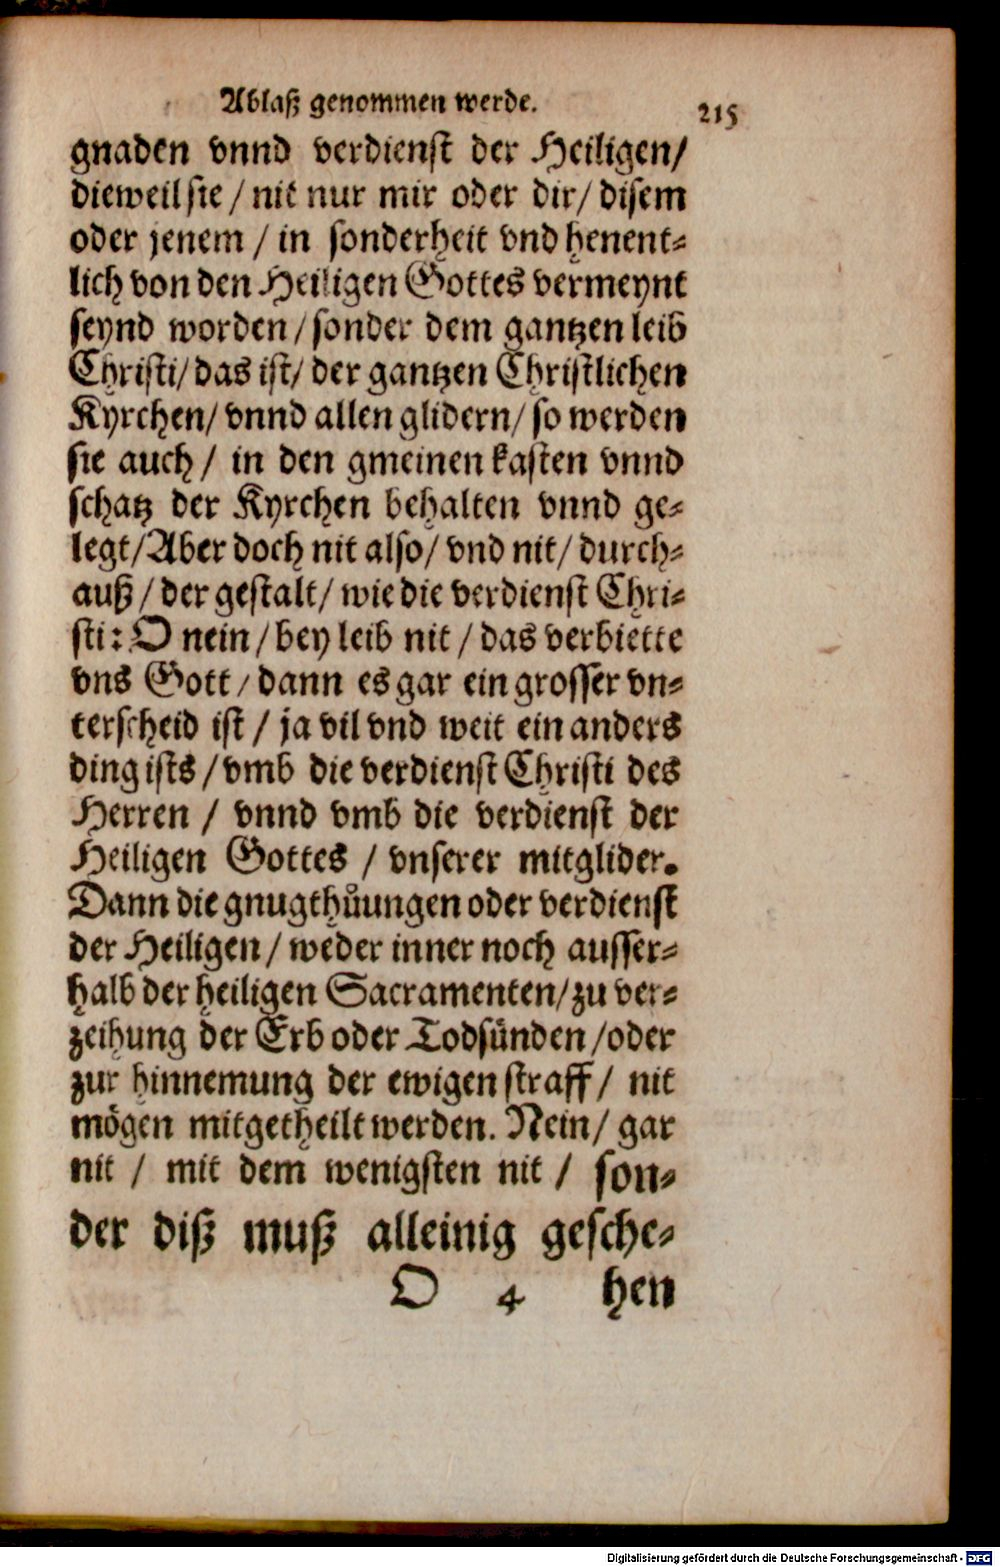 Ablaß genommen werde. 215
gnaden vnnd verdienst der Heiligen/
dieweil sie / nit nur mir oder dir/ disem
oder jenem / in sonderheit vnd henent-
lich von den Heiligen Gottes vermeynt
seynd worden/sonder dem gantzen leib
Christi/ das ist/ der gantzen Christlichen
Kyrchen/ vnnd allen glidern/ so werden
sie auch / in den gmeinen kasten vnnd
schatz der Kyrchen behalten vnnd ge-
legt/Aber doch nit also/ vnd nit/ durch-
auß / der gestalt/ wie die verdienst Chri-
sti: O nein / bey leib nit / das verbiette
vns Gott / dann es gar ein grosser vn-
terscheid ist / ja vil vnd weit ein anders
ding ists / vmb die verdienst Christi des
Herren / vnnd vmb die verdienst der
Heiligen Gottes / vnserer mitglider.
Dann die gnugthůungen oder verdienst
der Heiligen / weder inner noch ausser-
halb der heiligen Sacramenten/zu ver-
zeihung der Erb oder Todsünden /oder
zur hinnemung der ewigen straff / nit
mögen mitgetheilt werden. Nein/ gar
nit / mit dem wenigsten nit / son-
der diß muß alleinig gesche-
O 4 hen
Digitalisierung gefördert durch die Deutsche Forschungsgemeinschaft - DFG